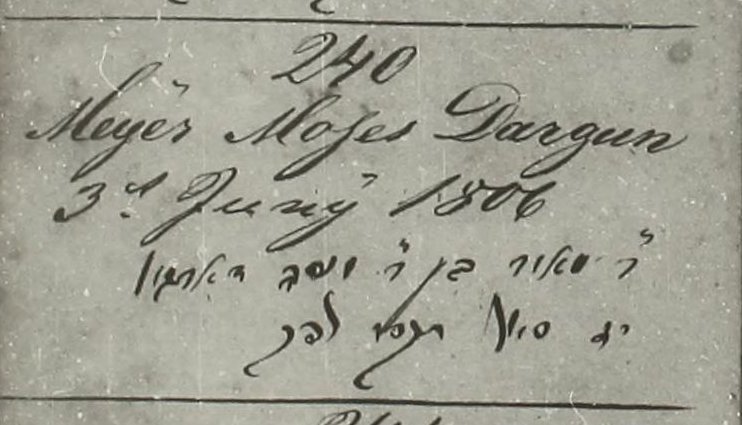 240
Meyer Moses Dargun
3t Juny 1806
ר' מאיר בן ר' דארגון
יז סיון תקסו לפק